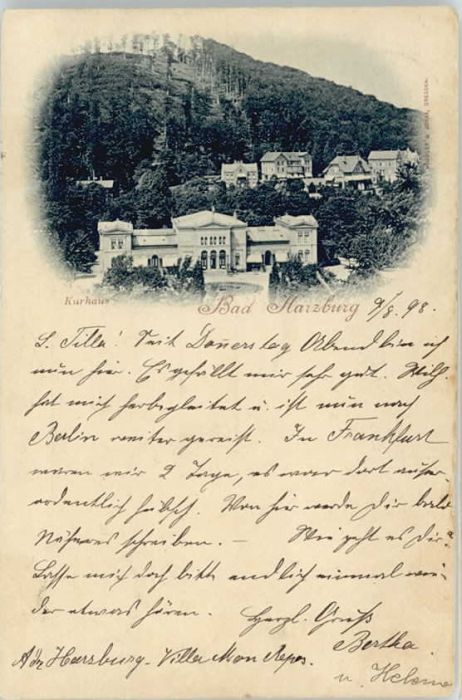 Kurhaus
Bad Harzburg 9/8. 98.
L. Tilla! Seit Donnerstag Abend bin ich
nun hier. Es gefällt mir sehr gut. Willy
hat mich herbegleitet u. ist nun nach
Berlin weiter gereist. In Frankfurt
waren wir 2 Tage, es war dort außer-
ordentlich hübsch. Von hier werde Dir bald
Näheres schreiben. — Wie geht es Dir?
Lasse mich doch bitte endlich einmal wie-
der etwas hören. Herzl. Gruß
Bertha
Adr. Harzburg - Villa Mon Repos.
u. Helene